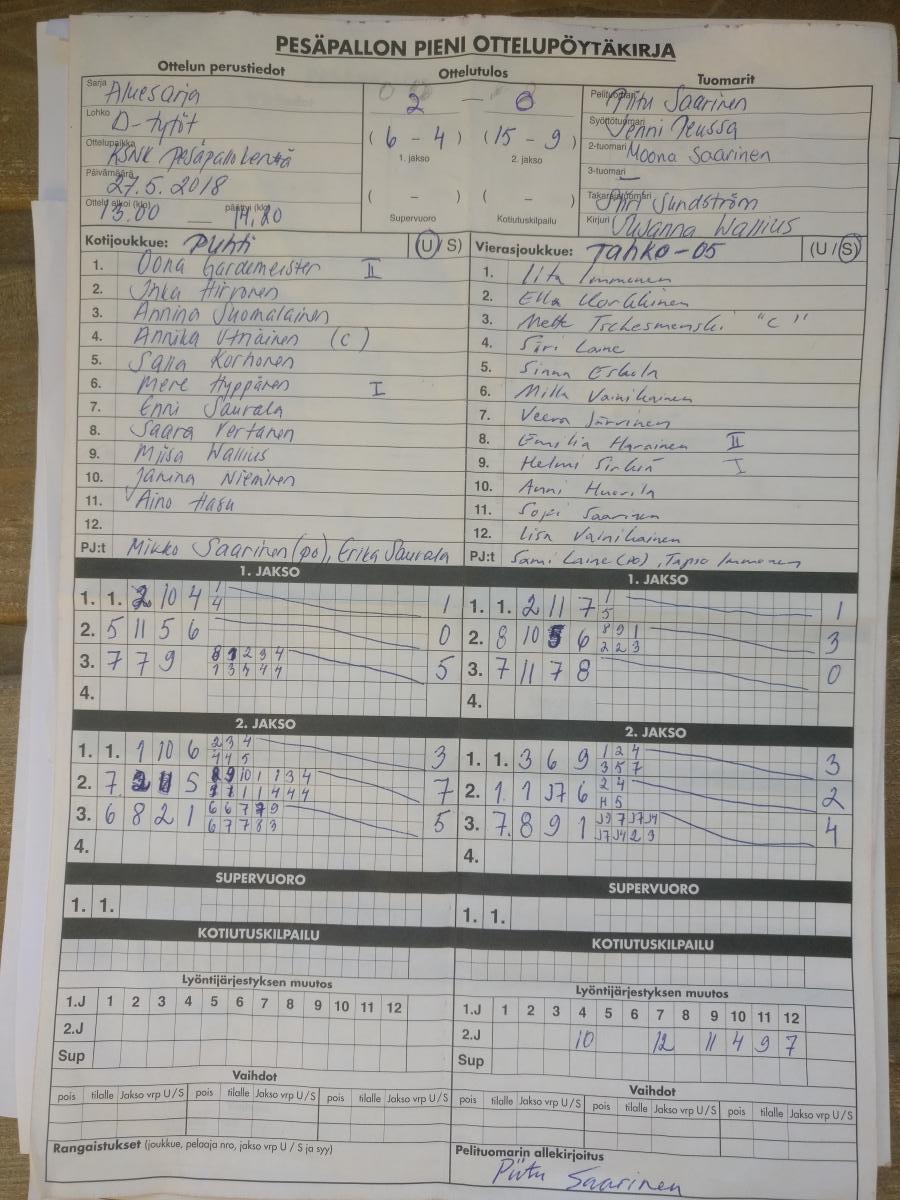 PESÄPALLON PIENI OTTELUPÖYTÄKIRJA
Ottelun perustiedot
Ottelutulos
Tuomarit
Sarja Aluesarja
2 — 0
Pelituomari Piitu Saarinen
Lohko D-tytöt
(6 - 4) (15 - 9)
1. jakso 2. jakso
Syöttötuomari Jenni
Ottelupaikka KSNK Pesäpallokenttä
2-tuomari Moona Saarinen
Päivämäärä 27.5.2018
( - ) ( - )
3-tuomari —
Ottelu alkoi (klo) 13.00 — päättyi (klo) 14.20
Supervuoro Kotiutuskilpailu
Takarajatuomari Sundström
Kirjuri Susanna Wallius
Kotijoukkue: Puhti (U/S)
Vierasjoukkue: Tahko-05 (U/S)
1. Oona Gardemeister II
2. Inka Hirvonen
3. Annina Suomalainen
4. Annika Utriainen (C)
5. Saga Korhonen
6. Mere Hyppänen I
7. Enni Saurala
8. Saara Vertanen
9. Miisa Wallius
10. Janina Nieminen
11. Aino Hasu
12.
PJ:t Mikko Saarinen (po), Erika Saurala
1. Iita Immonen
2. Ella Korkkinen
3. Mette Tschesmenski "C"
4. Siiri Laine
5. Sinna Eskola
6. Milla Vainikainen
7. Veera Järvinen
8. Emilia Harainen II
9. Helmi I
10. Anni Huovila
11. Sofi Saarinen
12. Iisa Vainikainen
PJ:t Sami Laine (po), Tapio Immonen
1. JAKSO
1. 1. 2 10 4 1 4 1
2. 5 11 5 6 0
3. 7 7 9 8 1 2 3 4 1 3 4 4 4 5
4.
1. JAKSO
1. 1. 2 11 7 1 5 1
2. 8 10 5 6 8 9 1 2 2 3 3
3. 7 11 7 8 0
4.
2. JAKSO
1. 1. 1 10 6 2 3 4 4 4 5 3
2. 7 5 7
3. 6 8 2 1 6 6 7 7 9 6 7 7 8 3 5
4.
2. JAKSO
1. 1. 3 6 9 1 2 4 3 5 7 3
2. 1 1 6 2 4 5 2
3. 7. 8 9 1 4
4.
SUPERVUORO
1. 1.
SUPERVUORO
1. 1.
KOTIUTUSKILPAILU
KOTIUTUSKILPAILU
Lyöntijärjestyksen muutos
1.J 1 2 3 4 5 6 7 8 9 10 11 12
2.J
Sup
Lyöntijärjestyksen muutos
1.J 1 2 3 4 5 6 7 8 9 10 11 12
2.J 10 12 11 4 9 7
Sup
Vaihdot
pois tilalle Jakso vrp U/S pois tilalle Jakso vrp U/S pois tilalle Jakso vrp U/S
Vaihdot
pois tilalle Jakso vrp U/S pois tilalle Jakso vrp U/S pois tilalle Jakso vrp U/S
Rangaistukset (joukkue, pelaaja nro, jakso vrp U / S ja syy)
Pelituomarin allekirjoitus
Piitu Saarinen